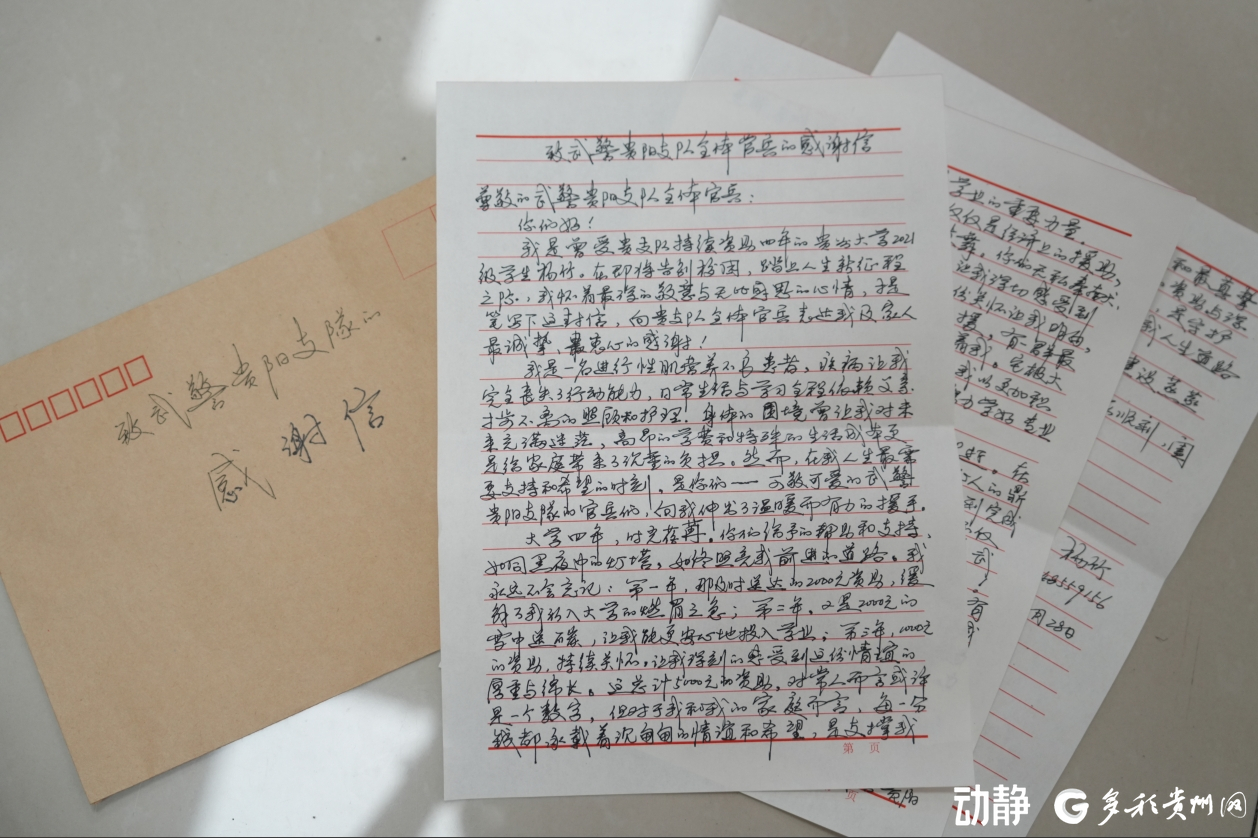 致武警贵阳支队的
感谢信
致武警贵阳支队全体官兵的感谢信
尊敬的武警贵阳支队全体官兵：
你们好！
我是曾受贵支队持续资助四年的贵州大学2021
级学生杨竹。在即将告别校园，踏上人生新征程
之际，我怀着最深的敬意与无比感恩的心情，提
笔写下这封信，向贵支队全体官兵表达我及家人
最诚挚、最衷心的感谢！
我是一名进行性肌营养不良患者，疾病让我
完全丧失了行动能力，日常生活与学习全程依赖父亲
寸步不离的照顾和护理。身体的困境曾让我对未
来充满迷茫，高昂的学费和特殊的生活成本更
是给家庭带来了沉重的负担。然而，在我人生最需
要支持和希望的时刻，是你们——可敬可爱的武警
贵阳支队的官兵们，向我伸出了温暖而有力的援手。
大学四年，时光荏苒。你们给予的帮助和支持，
如同黑夜中的灯塔，始终照亮我前进的道路。我
永远不会忘记：第一年，那及时送达的2000元资助，缓
解了我初入大学的燃眉之急；第二年，又是2000元的
雪中送碳，让我能更安心地投入学业；第三年，1000元
的资助，持续关怀，让我深刻的感受到这份情谊的
厚重与绵长。这总计5000元的资助，对常人而言或许
是一个数字，但对于我和我的家庭而言，每一分
钱都承载着沉甸甸的情谊和希望，是支撑我
第 页
学业的重要力量。
仅仅是经济上的援助，
你们无私奉献
让我深切感受到
关怀让我明白，
援，有军
着我。它极大
我以更加积
力学好专业
在
人的鼎
到完成
仅
武
有
我
页
和最真挚
贵州与您
我人生道路
顺利！阖
杨竹
月28日
动静
多彩贵州网